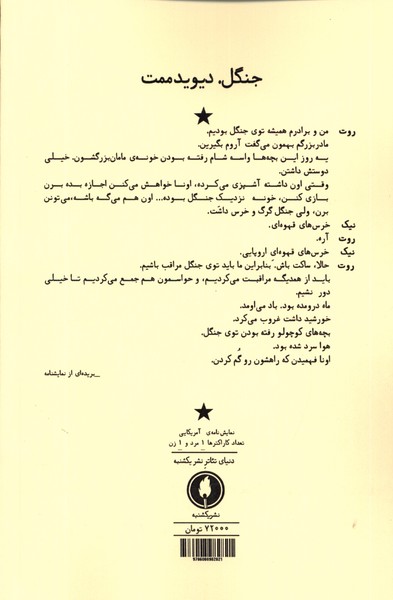 جنگل. دیویدممت
روت من و برادرم همیشه توی جنگل بودیم.
مادربزرگم بهمون می‌گفت آروم بگیرین.
یه روز این بچه‌ها واسه شام رفته بودن خونه‌ی مامان‌بزرگشون. خیلی
دوستش داشتن.
وقتی اون داشته آشپزی می‌کرده، اونا خواهش می‌کنن اجازه بده برن
بازی کنن، خونه نزدیک جنگل بوده... اون هم می‌گه باشه، می‌تونن
برن، ولی جنگل گرگ و خرس داشت.
نیک خرس‌های قهوه‌ای.
روت آره.
نیک خرس‌های قهوه‌ای اروپایی.
روت حالا، ساکت باش. بنابراین ما باید توی جنگل مراقب باشیم.
باید از همدیگه مراقبت می‌کردیم، و حواسمون هم جمع می‌کردیم تا خیلی
دور نشیم.
ماه درومده بود. باد می‌اومد.
خورشید داشت غروب می‌کرد.
بچه‌های کوچولو رفته بودن توی جنگل.
هوا سرد شده بود.
اونا فهمیدن که راهشون رو گم کردن.
_بریده‌ای از نمایشنامه
نمایش‌نامه‌ی آمریکایی
تعداد کاراکترها ۱ مرد و ۱ زن
دنیای تئاتر نشر یکشنبه
نشر یکشنبه
۷۲۰۰۰ تومان